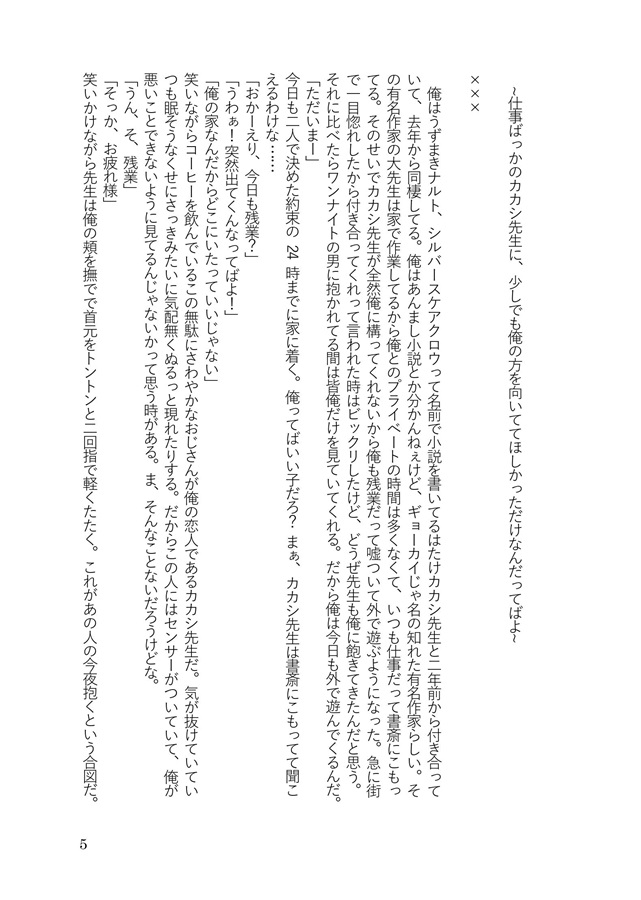 ~仕事ばっかのカカシ先生に、少しでも俺の方を向いててほしかっただけなんだってばよ~
×××
俺はうずまきナルト、シルバースケアクロウって名前で小説を書いてるはたけカカシ先生と二年前から付き合って
いて、去年から同棲してる。俺はあんまし小説とか分かんねぇけど、ギョーカイじゃ名の知れた有名作家らしい。そ
の有名作家の大先生は家で作業してるから俺とのプライベートの時間は多くなくて、いつも仕事だって書斎にこもっ
てる。そのせいでカカシ先生が全然俺に構ってくれないから俺も残業だって嘘ついて外で遊ぶようになった。急に街
で一目惚れしたから付き合ってくれって言われた時はビックリしたけど、どうせ先生も俺に飽きてきたんだと思う。
それに比べたらワンナイトの男に抱かれてる間は皆俺だけを見ていてくれる。だから俺は今日も外で遊んでくるんだ。
「ただいまー」
今日も二人で決めた約束の 24 時までに家に着く。俺ってばいい子だろ? まぁ、カカシ先生は書斎にこもってて聞こ
えるわけな……
「おかーえり、今日も残業?」
「うわぁ!突然出てくんなってばよ!」
「俺の家なんだからどこにいたっていいじゃない」
笑いながらコーヒーを飲んでいるこの無駄にさわやかなおじさんが俺の恋人であるカカシ先生だ。気が抜けていてい
つも眠そうなくせにさっきみたいに気配無くぬるっと現れたりする。だからこの人にはセンサーがついていて、俺が
悪いことできないように見てるんじゃないかって思う時がある。ま、そんなことないだろうけどな。
「うん、そ、残業」
「そっか、お疲れ様」
笑いかけながら先生は俺の頬を撫でで首元をトントンと二回指で軽くたたく。これがあの人の今夜抱くという合図だ。
5